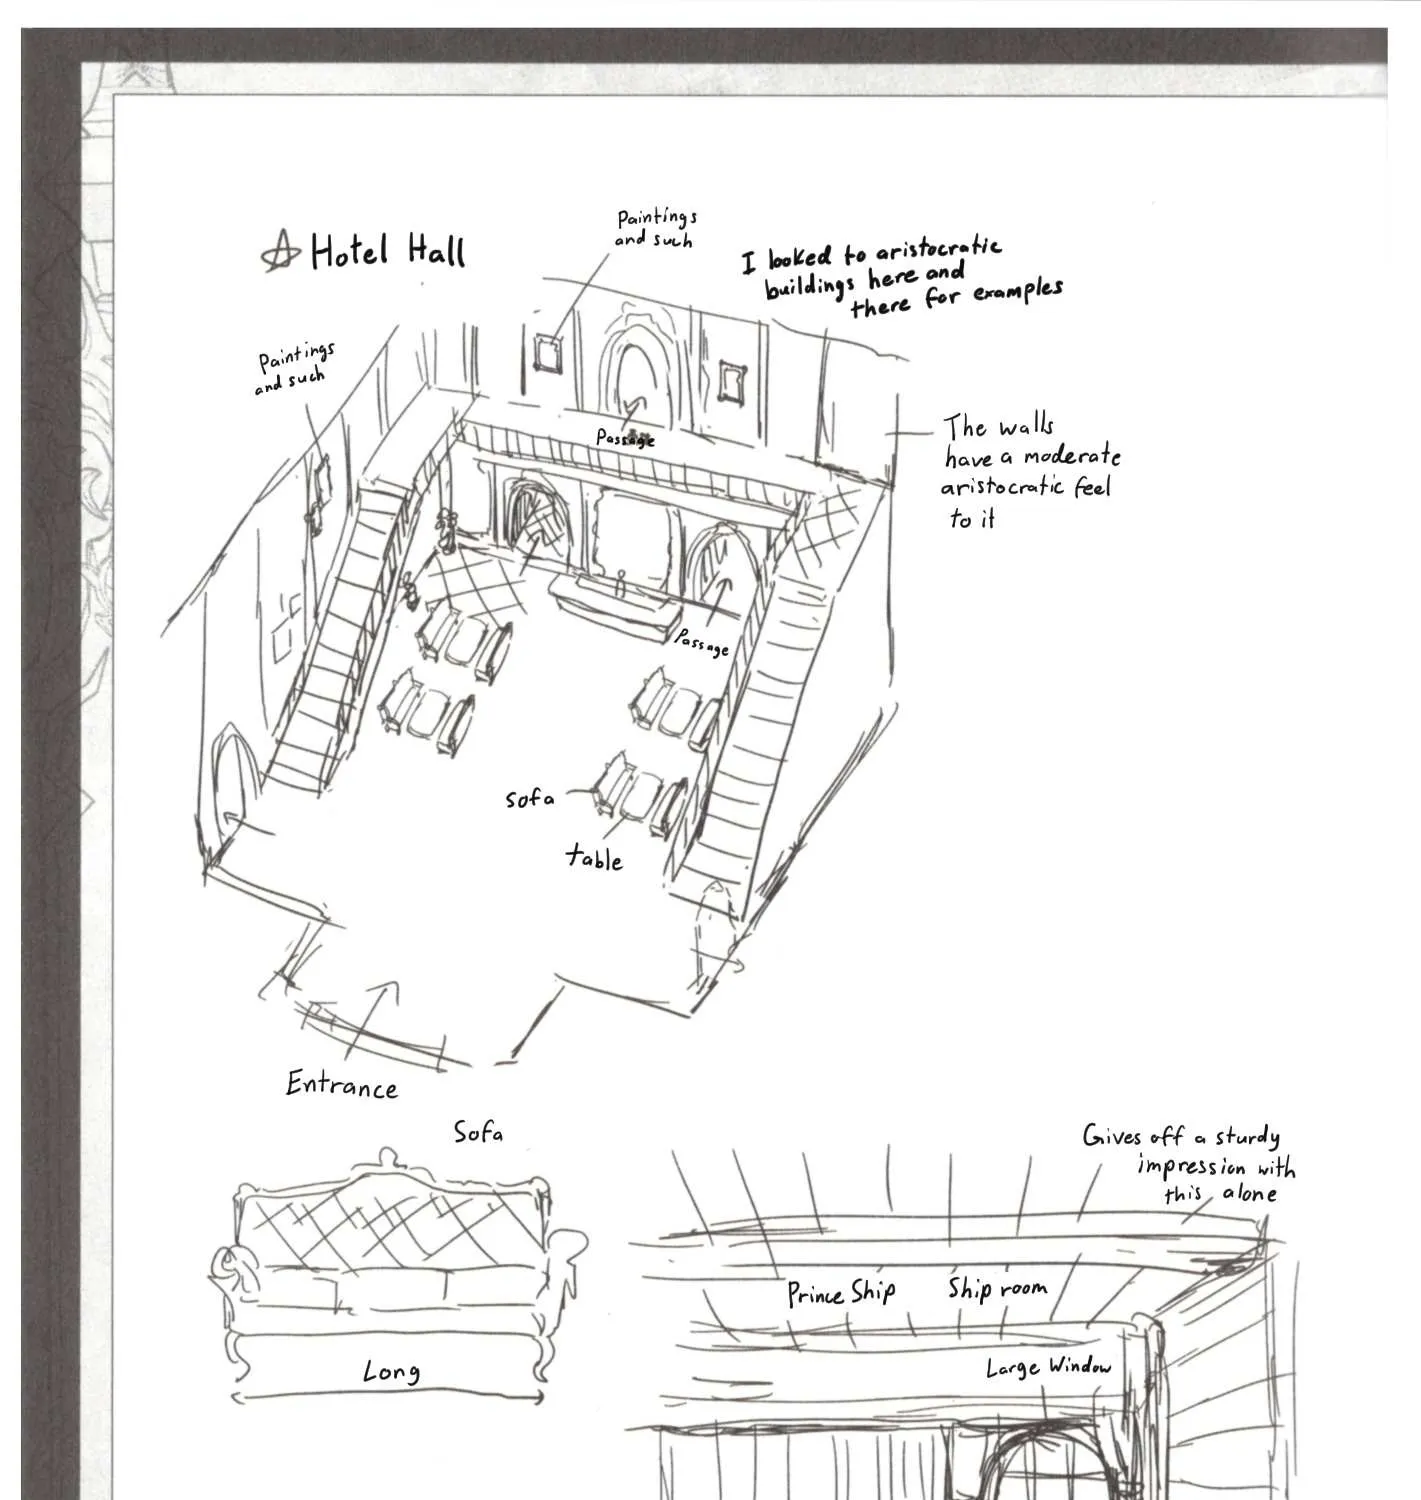 ☆ Hotel Hall
Paintings
and such
I looked to aristocratic
buildings here and
there for examples
Paintings
and such
The walls
have a moderate
aristocratic feel
to it
Passage
Passage
sofa
table
Entrance
Sofa
Long
Gives off a sturdy
impression with
this alone
Prince Ship Ship room
Large Window